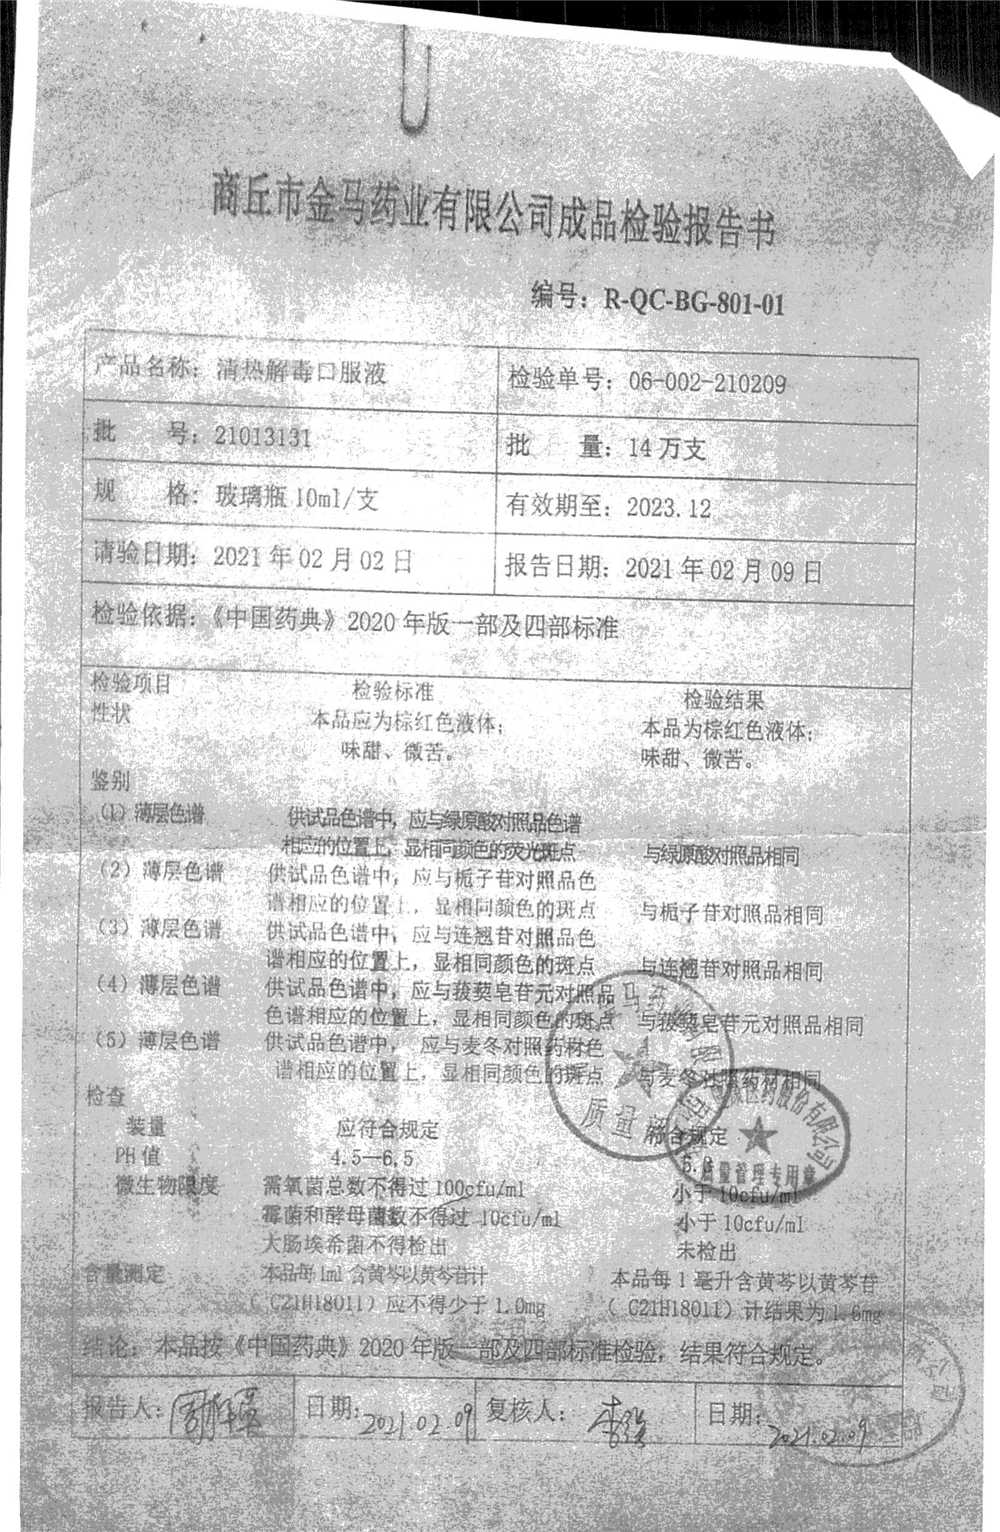 商丘市金马药业有限公司成品检验报告书
编号：R-QC-BG-801-01
产品名称：清热解毒口服液 检验单号：06-002-210209
批 号：21013131 批 量：14万支
规 格：玻璃瓶10ml/支 有效期至：2023.12
请验日期：2021年02月02日 报告日期：2021年02月09日
检验依据：《中国药典》2020年版一部及四部标准
检验项目 检验标准 检验结果
性状 本品应为棕红色液体； 本品为棕红色液体；
味甜、微苦。 味甜、微苦。
鉴别
（1）薄层色谱 供试品色谱中，应与绿原酸对照品色谱
相应的位置上，显相同颜色的荧光斑点 与绿原酸对照品相同
（2）薄层色谱 供试品色谱中，应与栀子苷对照品色
谱相应的位置上，显相同颜色的斑点 与栀子苷对照品相同
（3）薄层色谱 供试品色谱中，应与连翘苷对照品色
谱相应的位置上，显相同颜色的斑点 与连翘苷对照品相同
（4）薄层色谱 供试品色谱中，应与菝葜皂苷元对照品
色谱相应的位置上，显相同颜色的斑点 与菝葜皂苷元对照品相同
（5）薄层色谱 供试品色谱中， 应与麦冬对照药材色
谱相应的位置上，显相同颜色的斑点 与麦冬对照药材相同
检查
装量 应符合规定 符合规定
PH值 4.5—6.5
微生物限度 需氧菌总数不得过100cfu/ml 小于10cfu/ml
霉菌和酵母菌数不得过 10cfu/ml 小于10cfu/ml
大肠埃希菌不得检出 未检出
含量测定 本品每1ml含黄芩以黄芩苷计 本品每1毫升含黄芩以黄芩苷
（ C21H18O11）应不得少于1.0mg （ C21H18O11）计结果为1.6mg
结论：本品按《中国药典》2020年版一部及四部标准检验，结果符合规定。
报告人： 日期：2021.02.09 复核人：李强 日期：2021.02.09
质量部
医药股份有限公司
质量管理专用章